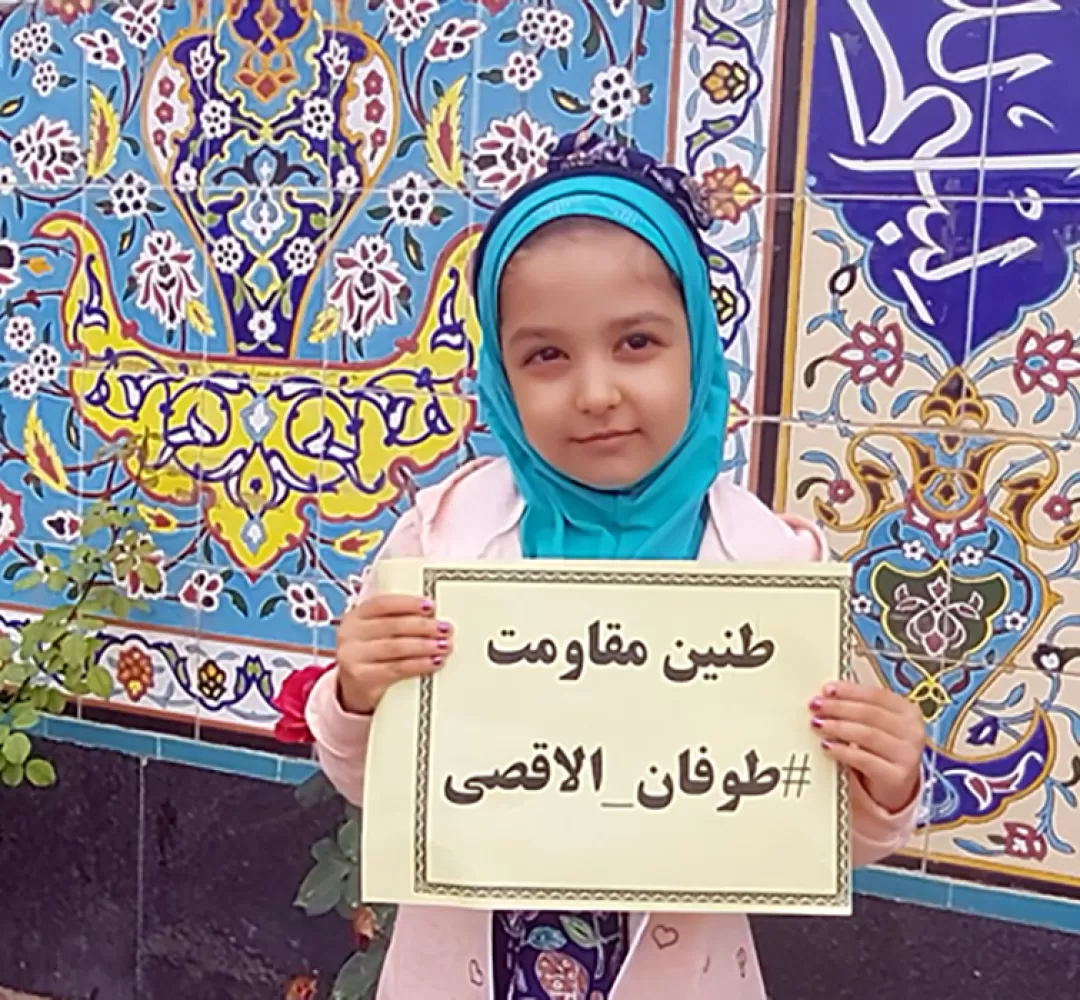 طنین مقاومت
#طوفان_الاقصی